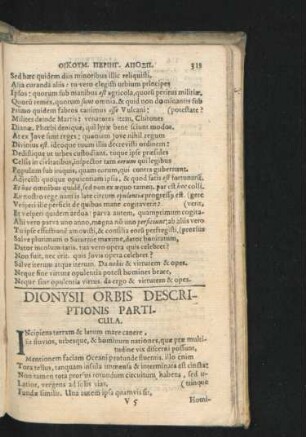 ΟΙΚΟΥΜ. ΠΕΡΙΗΓ. ΑΠΟΣΠ. 313
Sed hæc quidem diis minoribus illic reliquisti,
Alia curanda aliis: tu vero elegisti urbium principes
Ipsos: quorum sub manibus est agricola, quosi peritus militiæ,
Quosi remex, quorum sunt omnia, & quid non dominantis sub
Primo quidem fabros canimus esse Vulcani: (potestate?
Milites deinde Martis: venatores item, Chitones
Dianæ. Phœbi denique, qui lyræ bene sciunt modos.
At ex Jove sunt reges; quoniam Jovis nihil regum
Divinius est. ideoque tuum illis decrevisti ordinem:
Dedistique ut urbes custodiant. ipse præsides
Celsis in civitatibus, inspector tam eorum qui legibus
Populum sub iniquis, quam eorum, qui contra gubernant.
Adjecisti quoque opulentiam ipsis, & quod satis est fortunarū.
Et hæc omnibus quidē, sed non ex æquo tamen. par est hoc colli,
Ex nostro rege. multis late etenim opulentia progressus est. (gere
Vesperi ille perficit de quibus mane cogitaverit? (verit,
Et vesperi quidem ardua: parva autem, quamprimum cogita-
Alii vero parva uno anno, magna ne uno quidem: aliis vero
Tu ipse effectionē amovisti, & consilia eorū perfregisti, (penitus
Salve plurimum o Saturnie maxime, dator bonorum,
Dator incolumitatis. tua vero opera quis celebret?
Non fuit, nec erit. quis Jovis opera celebret?
Salve iterum atque iterum. Da nobis & virtutem & opes.
Neque sine virtute opulentia potest homines beare,
Neque sine opulentia virtus. da ergo & virtutem & opes.
DIONYSII ORBIS DESCRI-
PTIONIS PARTI-
CULA.
INcipiens terram & latum mare canere,
Et fluvios, urbesque, & hominum nationes, quæ præ multi-
tudine vix discerni possunt,
Mentionem faciam Oceani profunde fluentis. illo enim
Tota tellus, tanquam insula immensa & interminata est cincta:
Non tamen tota prorsus rotundum circuitum habens, sed u-
Latior, vergens ad solis vias, (trinque
Fundæ similis. Una autem ipsa quamvis sit,
V 5 Homi-